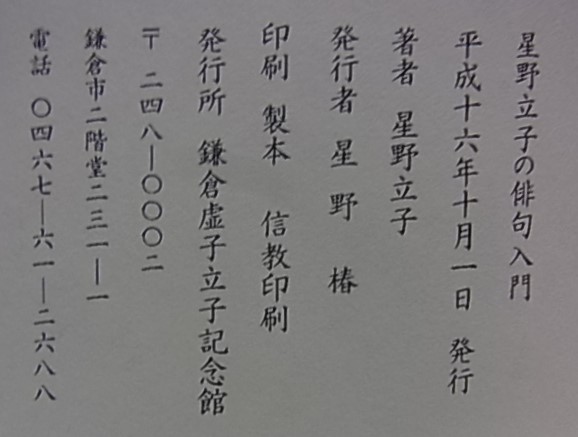 星野立子の俳句入門
平成十六年十月一日 発行
著者 星野立子
発行者 星野 椿
印刷 製本 信教印刷
発行所 鎌倉虚子立子記念館
〒 二四八―〇〇〇二
鎌倉市二階堂二三一―一
電話 〇四六七―六一―二六八八